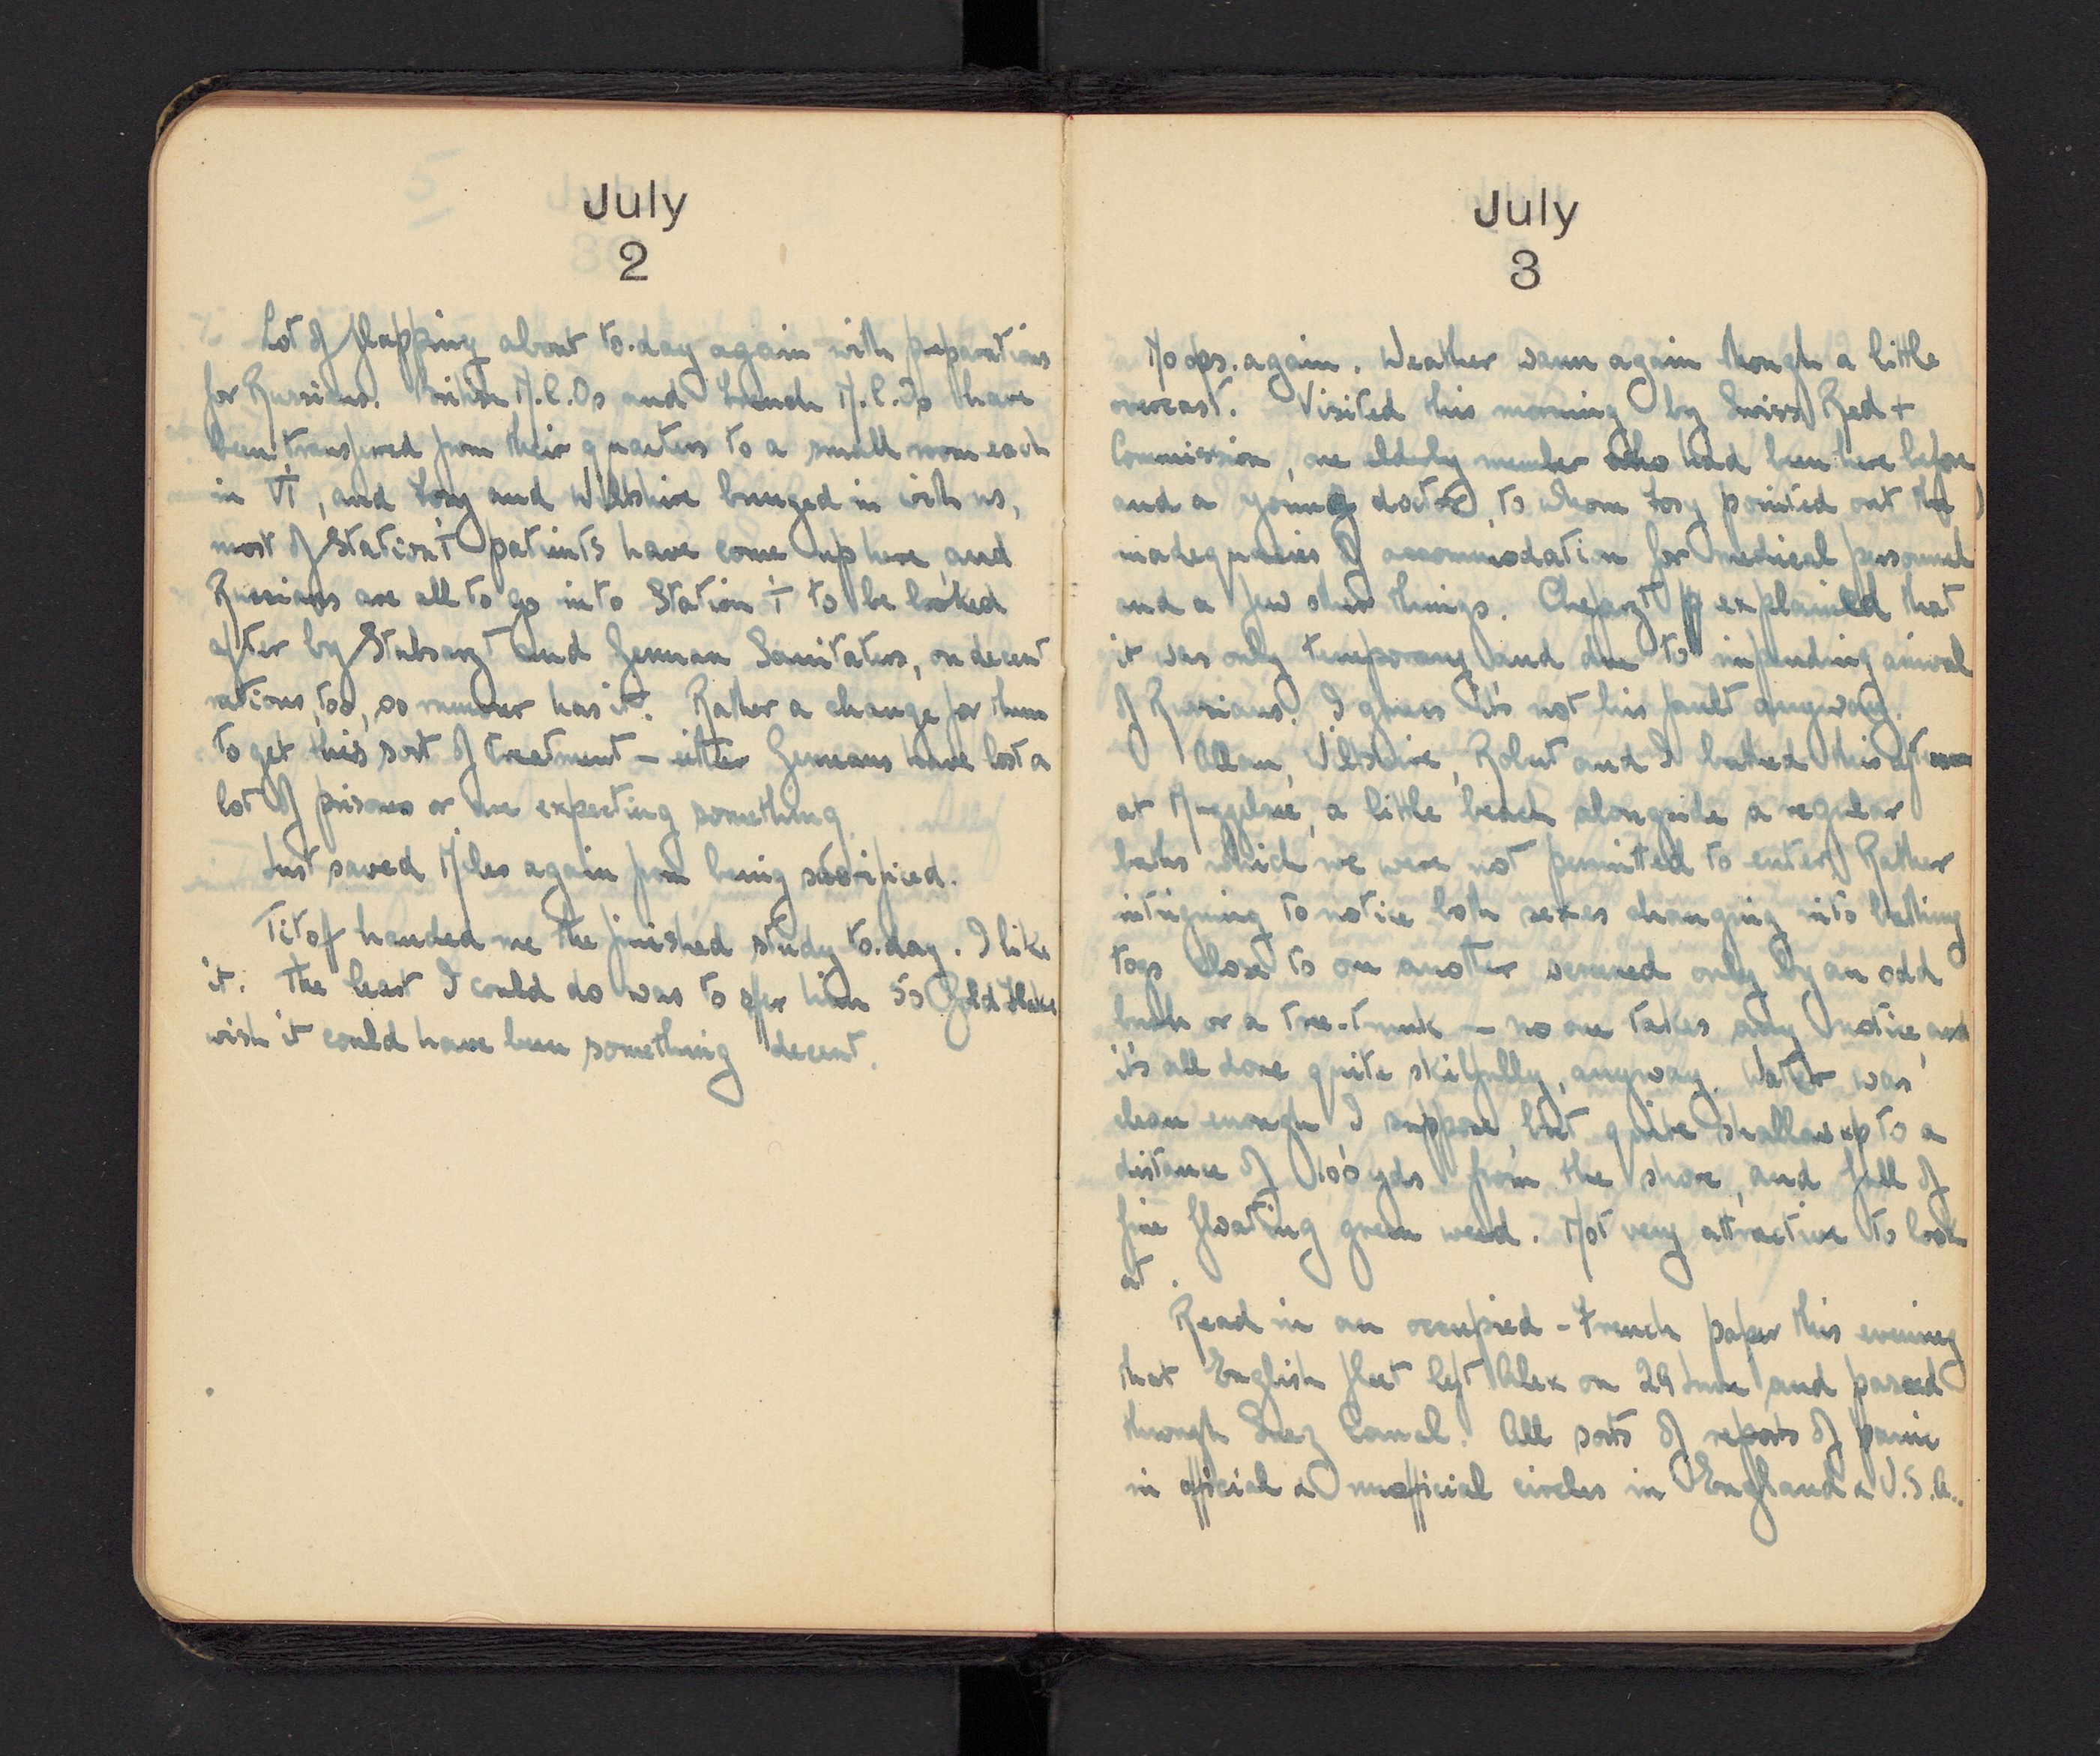 July
2
Lot of flapping about to.day again with preparations
for Russians. British N.C.Os and French N.C.Os have
been transfered from their quarters to a small room each
in VI, and Tony and Wiltshire barged in with us,
most of Station I patients have come up here and
Russians are all to go into Station I to be looked
after by Stabsarzt and German Sanitaters, on decent
rations, too, so rumour has it. Rather a change for them
to get this sort of treatment – either Germans have lost a
lot of prisoners or are expecting something.
Just saved Miles again from being sacrificed.
Titof handed me the finished study to.day. I like
it. The least I could do was to offer him 50 Gold Flake
wish it could have been something decent.
July
3
No ops. again. Weather warm again though a little
overcast. Visited this morning by Swiss Red +
Commission, one elderly member who had been here before
and a young doctor, to whom Tony pointed out the
inadequacies of accommodation for medical personnel
and a few other things. Chefarzt explained that
it was only temporary and due to impending arrival
of Russians. I guess it's not his fault anyway.
Allan, Wiltshire, Robert and I bathed this afternoon
at, a little beach alongside a regular
baths which we were not permitted to enter. Rather
intriguing to notice both sexes changing into bathing
togs close to one another screened only by an odd
bush or a tree-trunk – no one takes any notice and
it's all done quite skilfully, anyway. Water was
clean enough I suppose, but quite shallow up to a
distance of 100 yds from the shore, and full of
fine floating green weed. Not very attractive to look
at.
Read in an occupied - French paper this evening
that English fleet left Alex on 29 June and passed
through Suez Canal. All sorts of reports of panic
in official & unofficial circles in England & U.S.A..